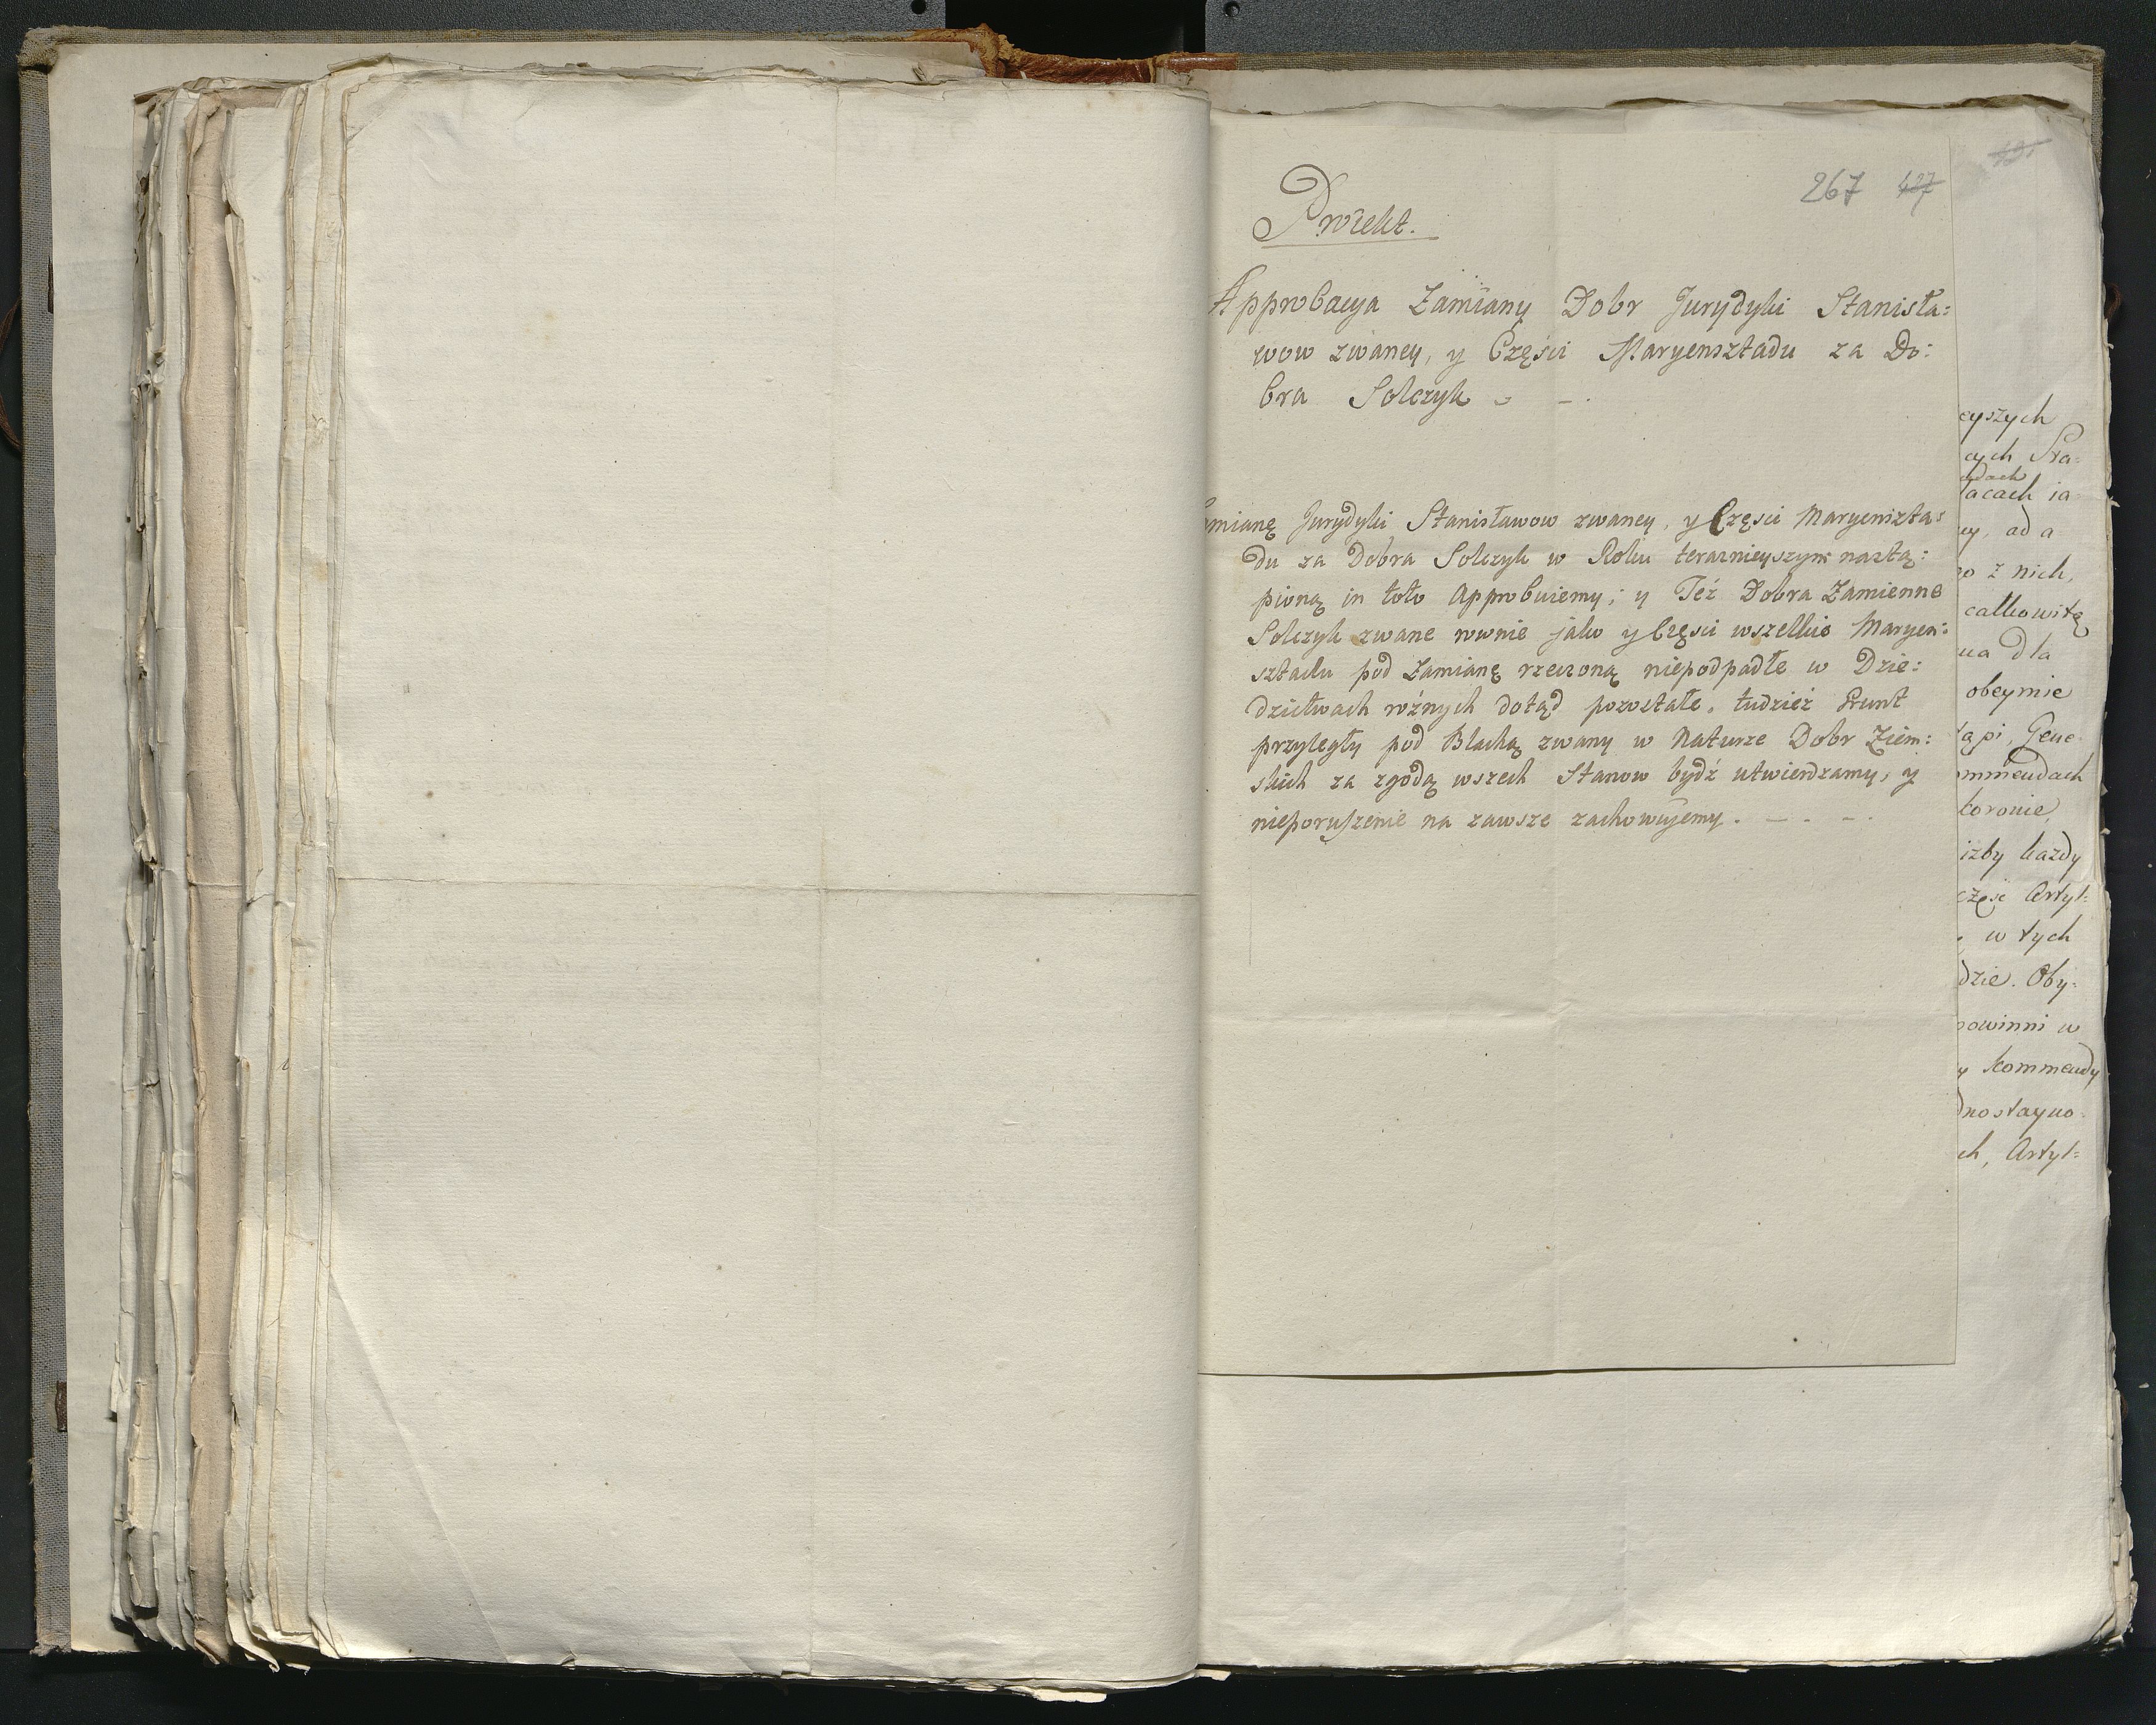 267 427
Proiekt.
Approbacya Zamiany Dobr Jurydyki Stanisła:
wow zwaney, y Części Maryensztadu za Do:
bra Solczyk
mianę Jurydyki Stanisławow zwaney, y Części Maryenszta:
du za Dobra Solczyk w Roku teraznieyszym nastą:
pioną in toto Approbuiemy; y Też Dobra Zamienne
Solczyk zwane rownie jako y Części wszelkie Maryen:
sztadu pod Zamianę rzeczoną niepodpadłe w Dzie:
dzictwach rożnych dotąd pozostałe, tudzież Grunt
przyległy pod Blachą zwany w Naturze Dobr Ziem:
skich za zgodą wszech Stanow bydź utwierdzamy, y
nieporuszenie na zawsze zachowujemy.
eyszych
cych Pra:
łacach ia
ey, ad a
o z nich,
całkowitę
ua dla
obeymie
api, Gene
ommendach
koronie,
izby każdy
częsc Artyl:
w tych
dzie. Oby:
powinni w
y Kommendy
dnostayno
ch, Artyl: